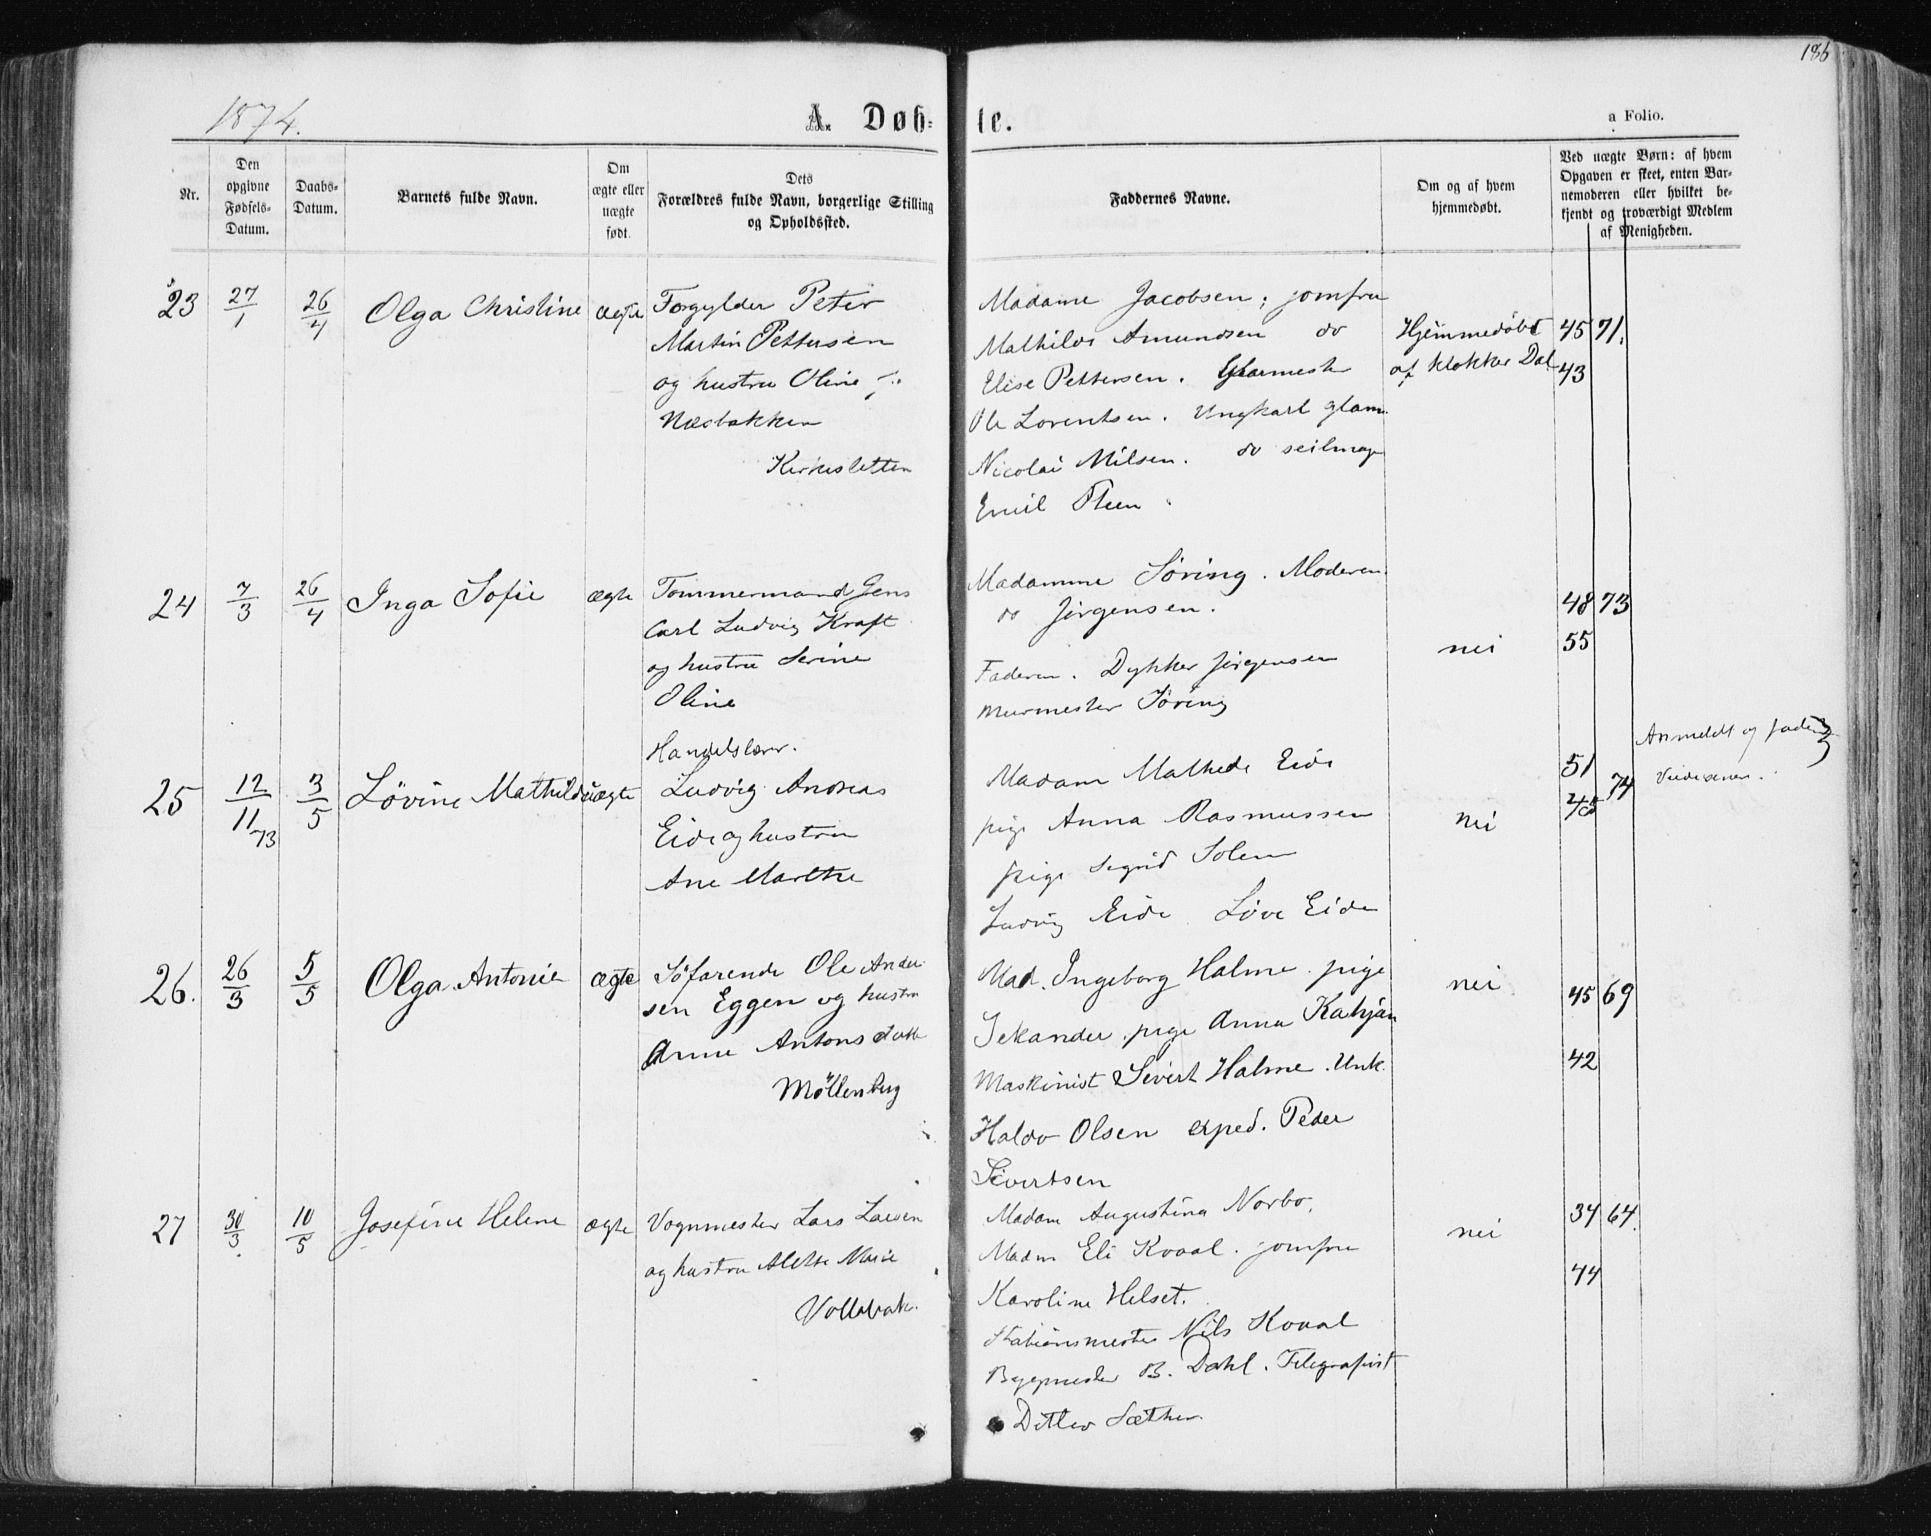 186
1874.
A. Døb-
te.
a Folio.
Nr.
Den
opgivne
Fødsels-
Datum.
Daabs-
Datum.
Barnets fulde Navn.
Om
ægte eller
uægte
født.
Dets
Forældres fulde Navn, borgerlige Stilling
og Opholdssted.
Faddernes Navne.
Om og af hvem
hjemmedøbt.
Ved uægte Børn: af hvem
Opgaven er skeet, enten Bar-
nemoderen eller hvilket be-
kjendt og troværdigt Medlem
af Menigheden.
23 27/1 26/4 Olga Christine ægte
Forgylder Peter
Martin Pettersen
og hustru Oline
Næsbakken
Kirkesletten
Madame Jacobsen; jomfru
Mathilde Amundsen do
Elise Pettersen. Glarmester
Ole Lorentsen. Ungkarl glam.
Nicolai Milsen. do seilmag
Emil
Hjemmedøbt
af klokker Dal
45 71.
43
24 7/3 26/4 Inga Sofie ægte
Tømmermand Jens
Carl Ludvig Kraft
og hustru Serine
Oline
Madamme Søring. Moderen.
do Jørgensen.
Faderen. Dykker Jørgensen
Murmester Søring
nei
48 73
55
25 12/11 73 3/5 Løvine Mathilde uægte
Handelsbær.
Ludvig Andreas
Eide og hustru
Ane Marthe
Madam Mathede Eide
pige Anna Rasmussen
pige Sigrid Solem
Ludvig Eide Løve Eide
nei
51 74
45
Anmeldt og faderen
26. 26/3 5/5 Olga Antonie ægte
Søfarende Ole Ander-
sen Eggen og hustru
Anne Antonsdatt
Möllenberg
Mad. Ingeborg Halme. pige
Jekander. pige Anna
Maskinist Sivert Halme. Unk.
Haldo Olsen exped. Peder
Sivertsen
nei
45 69
42
27 30/3 10/5 Josefine Helene ægte
Vognmester Lars Larsen
og hustru Alette Marie
Vollabak.
Madam Augustina Norbo.
Madm Eli Kvaal. jomfru
Karoline Helset.
Stationsmester Nils Kvaal
Bygmester B. Dahl. Telegrafist
Ditlev Sæther
nei
34 64.
44